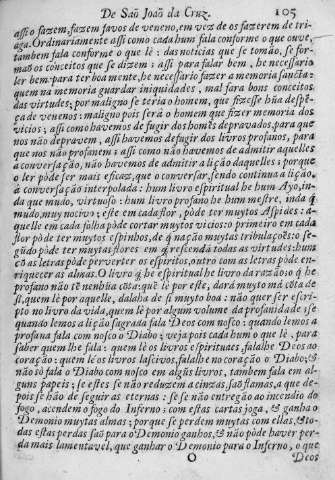 De Saõ Joaõ da Cruz. 105
assi o fazem, fazem favos de veneno, em vez de os fazerem de tri-
aga. Ordinariamente assi como cada hum fala conforme o que ouve,
tambem fala conforme o que lê: das noticias que se tomão, se for-
maõ os conceitos que se dizem; assi para falar bem, he necessario
ler bem: para ter boa mente, he necessario fazer a memoria sancta:
quem na memoria guardar iniquidades, mal fara bons conceitos
das virtudes; por maligno se teria o homem, que fizesse hũa despẽ-
ça de venenos: maligno pois serà o homem que fizer memoria dos
vicios; assi como havemos de fugir dos homẽs depravados, para que
nos não depravem, assi havemos de fugir dos livros profanos, para
que nos não profanem: assi como não havemos de admitir aquelles
a conversação, não havemos de admitir a lição daquelles: porque
o ler póde ser mais eficaz, que o conversar, sendo continua a lição,
à conversação interpolada: hum livro espiritual he hum Ayo, in-
da que mudo, virtuoso: hum livro profano he hum mestre, inda q̃
mudo, muy nocivo; este em cada flor, póde ter muytos Aspides: a-
quelle em cada folha póde cortar muytos vicios: o primeiro em cada
flor póde ter muytos espinhos, de q̃ nação muytas tribulações: o se-
gũdo póde ter muytas flores em q̃ resceda todas as virtudes: hum
cõ as letras póde perverter os espiritos, outro com as letras póde en-
riquecer as almas. O livro q̃ he espiritual he livro da razão: o q̃ he
profano não tẽ nenhũa cõta: quẽ lè por este, dará muyto má cõta de
si, quem lè por aquelle, dalaha de si muyto boa: não quer ser escri-
pto no livro da vida, quem lè por algum volume da profanidade; se
quando lemos a lição sagrada fala Deos com nosco: quando lemos a
profana fala com nosco o Diabo; veja pois cada hum o que lè, para
saber quem lhe fala: quem lè os livros espirituaes, falalhe Deos ao
coração: quem lè os livros lascivos, falalhe no coração o Diabo; &
não só fala o Diabo com nosco em algũs livros, tambem fala em al-
guns papeis; se estes se não reduzem a cinzas, saõ flamas, a que de-
pois se hão de seguir as eternas: se se não entregão ao incendio do
fogo, acendem o fogo do Inferno; com estas cartas joga, & ganha o
Demonio muytas almas; porque se perdem muytas com ellas, & to-
das estas perdas saõ para o Demonio ganhos, & não póde haver per-
da mais lamentavel, que ganhar o Demonio para o Inferno, o que
O Deos